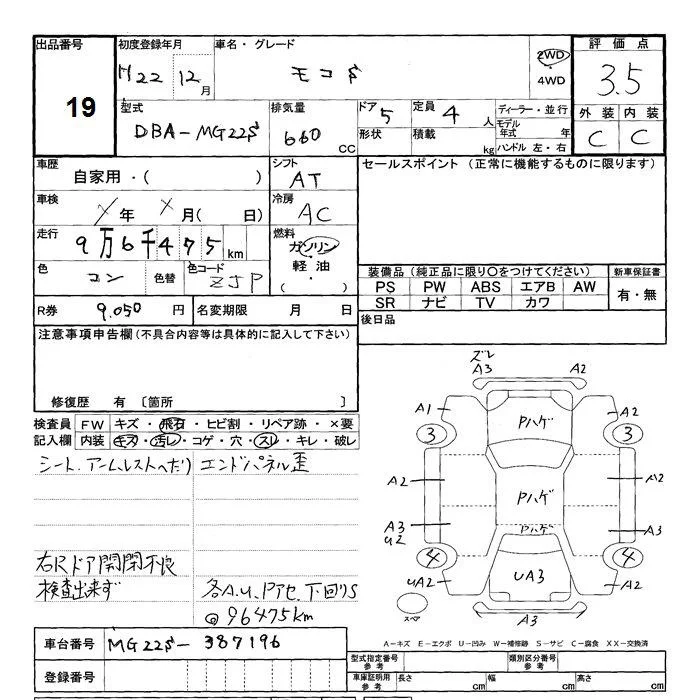 出品番号 19
初度登録年月 H22 12 月
車名・グレード モコS
2WD
4WD
評価点 3.5
外装 内装
C C
型式 DBA-MG22S
排気量 660 CC
ドア 5
形状
定員 4 人
積載 kg
ディーラー・並行
モデル年式 年
ハンドル 左・右
車歴 自家用・( )
シフト AT
セールスポイント (正常に機能するものに限ります)
車検 / 年 X 月( 日)
冷房 AC
走行 9万6千475 km
燃料 ガソリン
軽油
・
( )
色 コン
色替
色コード ZJP
装備品 (純正品に限り○をつけてください)
新車保証書
PS PW ABS エアB AW
SR ナビ TV カワ
有・無
R券 9.050 円
名変期限 月 日
後日品
注意事項申告欄 (不具合内容等は具体的に記入して下さい)
修復歴 有 〔箇所 〕
検査員 FW キズ・飛石・ヒビ割・リペア跡・×要
記入欄 内装 キズ・汚レ・コゲ・穴・スレ・キレ・破レ
シート.アームレストへたり
エンドパネル歪
右Rドア開閉不良
検査出来ず
各A.U.Pアセ.下回りS
@96475km
ズレ
A3 A2
A1 A2
3 3
Pハゲ
A2 A2
Pハゲ
A3 A3
U2
Pハゲ
4 4
UA2 A2
UA3
スペア
A3
A-キズ E-エクボ U-凹み W-補修跡 S-サビ C-腐食 XX-交換済
車台番号 MG22S-387196
登録番号
型式指定番号 参考
類別区分番号 参考
車庫証明用 参考
長さ cm
幅 cm
高さ cm